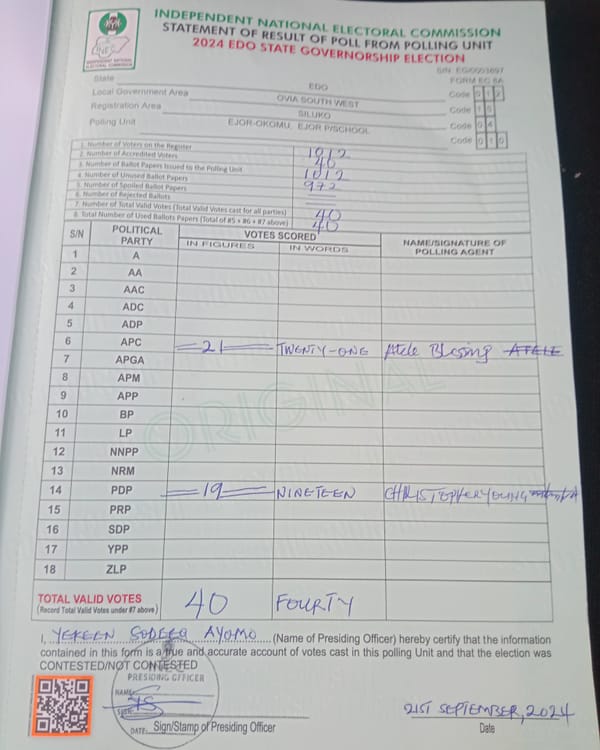 INDEPENDENT NATIONAL ELECTORAL COMMISSION
STATEMENT OF RESULT OF POLL FROM POLLING UNIT
2024 EDO STATE GOVERNORSHIP ELECTION
INDEPENDENT NATIONAL ELECTORAL COMMISSION
FORM EC 8A
State EDO Code 0 1 2
Local Government Area OVIA SOUTH WEST Code 1 8
Registration Area SILUKO Code 0 4
Polling Unit EJOR-OKOMU, EJOR P/SCHOOL Code 0 1 0
1. Number of Voters on the Register 1012
2. Number of Accredited Voters 40
3. Number of Ballot Papers Issued to the Polling Unit 1012
4. Number of Unused Ballot Papers 972
5. Number of Spoiled Ballot Papers
6. Number of Rejected Ballots
7. Number of Total Valid Votes (Total Valid Votes cast for all parties) 40
8. Total Number of Used Ballots Papers (Total of #5 + #6 + #7 above) 40
S/N POLITICAL PARTY VOTES SCORED NAME/SIGNATURE OF POLLING AGENT
IN FIGURES IN WORDS
1 A
2 AA
3 AAC
4 ADC
5 ADP
6 APC 21 TWENTY-ONE Atele Blessing ATELE
7 APGA
8 APM
9 APP
10 BP
11 LP
12 NNPP
13 NRM
14 PDP 19 NINETEEN CHRISTOPHER YOUNG
15 PRP
16 SDP
17 YPP
18 ZLP
ORIGINAL
TOTAL VALID VOTES 40 FOURTY
(Record Total Valid Votes under #7 above)
I, YEKEEN AYOMO (Name of Presiding Officer) hereby certify that the information
contained in this form is a true and accurate account of votes cast in this polling Unit and that the election was
CONTESTED/NOT CONTESTED
PRESIDING OFFICER
NAME:
SIGN:
DATE:
Sign/Stamp of Presiding Officer
21ST SEPTEMBER, 2024
Date